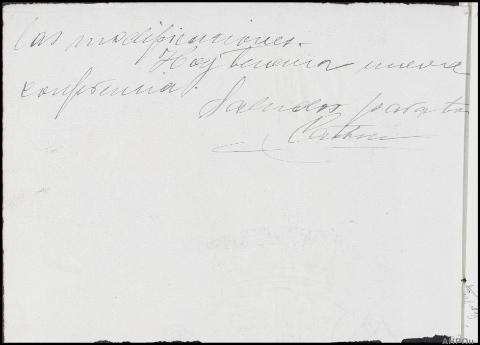 las modificaciones.
Hoy tenemos nueva
conferencia.
Saludos para to